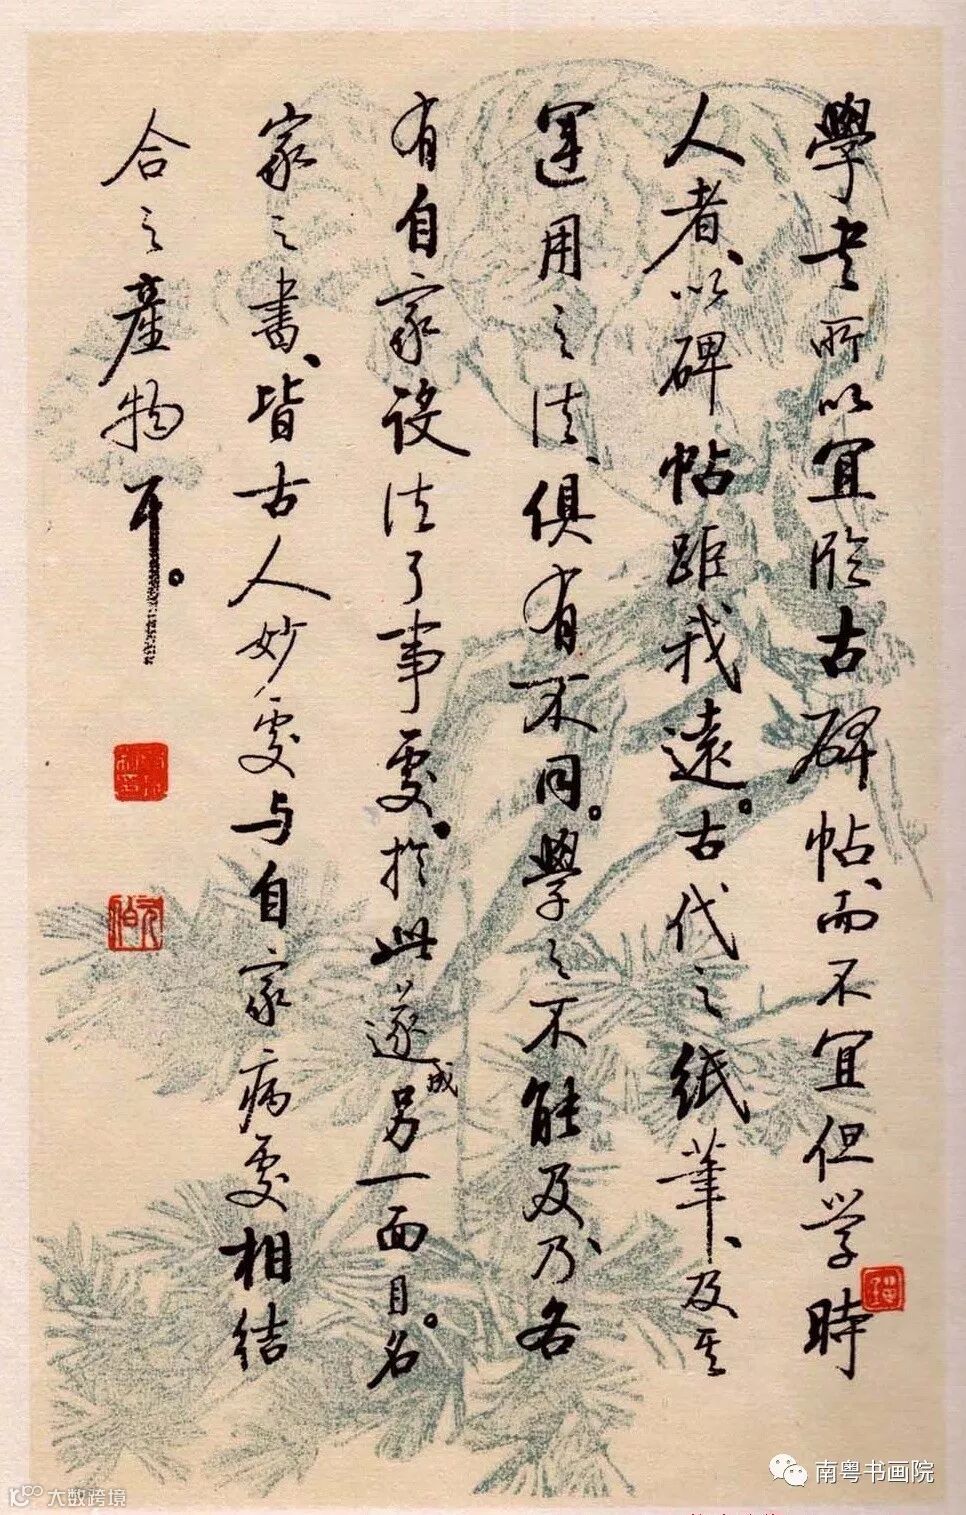 學书所以宜临古碑帖、而不宜但学時
人者、以碑帖距我遠。古代之紙筆、及其
運用之法、俱有不同。學之不能及、乃各
有自家设法了事處。於此遂成另一面目。名
家之書、皆古人妙處与自家病處相结
合之產物耳。
南粤书画院
大数跨境